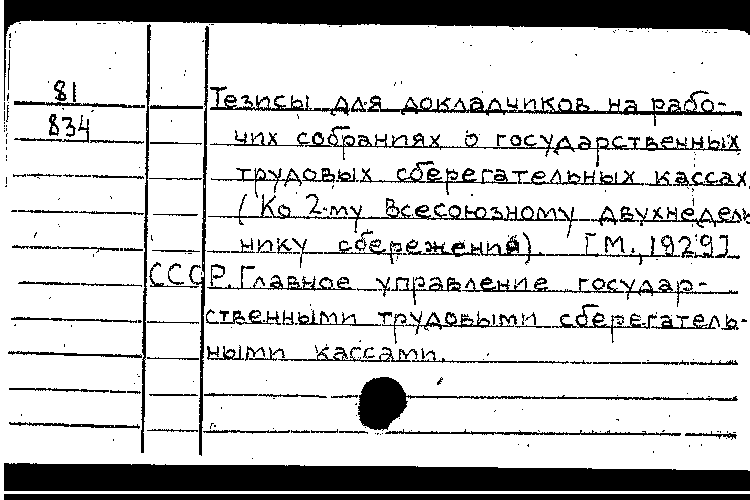 81
834
Тезисы для докладчиков на рабо-
чих собраниях о государственных
трудовых сберегательных кассах
(Ко 2-му Всесоюзному двухнедель
нику сбережения). [М., 1929]
СССР. Главное управление государ-
ственными трудовыми сберегатель-
ными кассами.